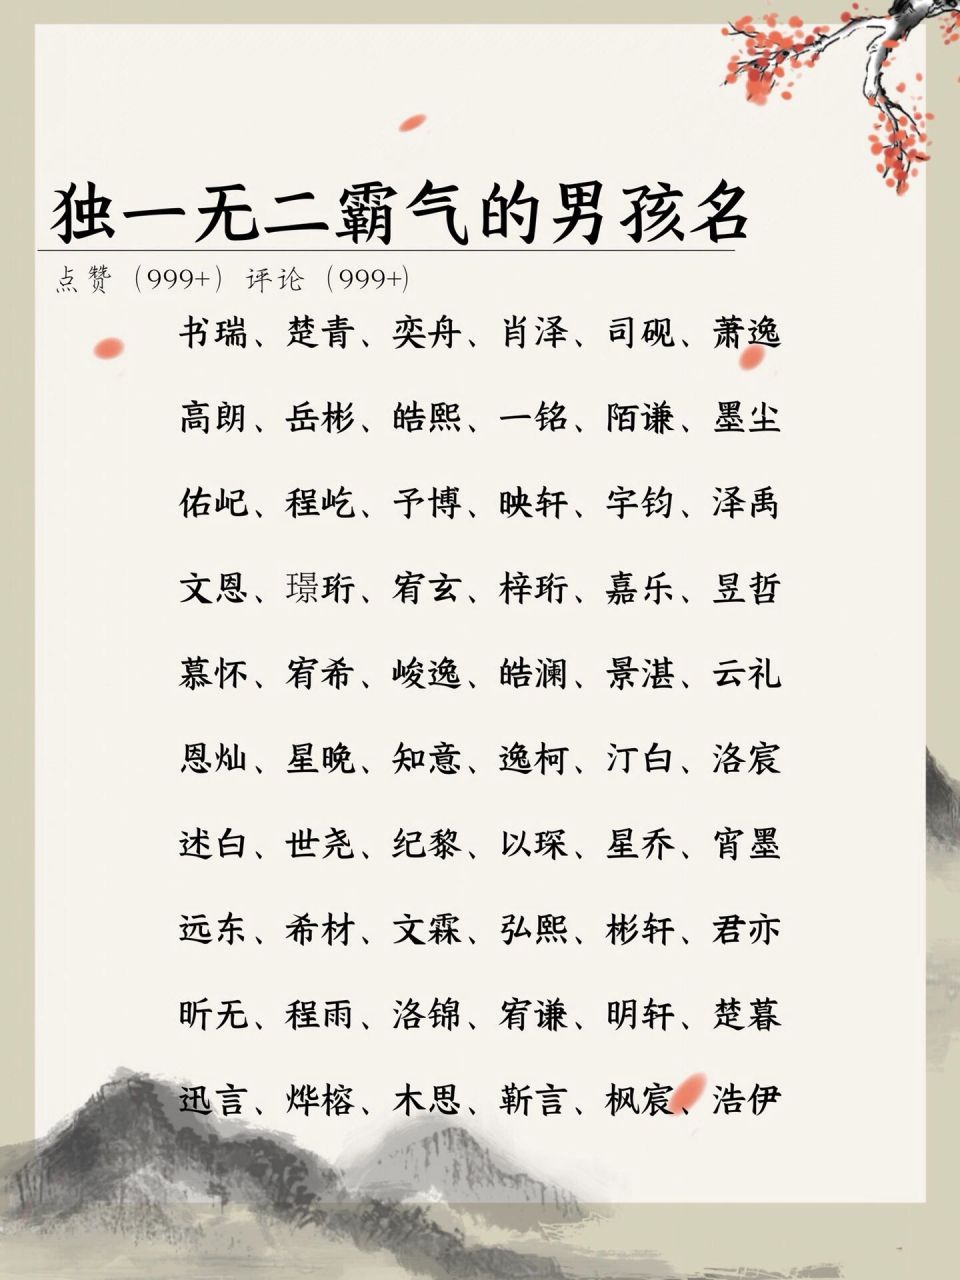 独一无二霸气的男孩名
点赞（999+）评论（999+）
书瑞、楚青、奕舟、肖泽、司砚、萧逸
高朗、岳彬、皓熙、一铭、陌谦、墨尘
佑屺、程屹、予博、映轩、宇钧、泽禹
文恩、璟珩、宥玄、梓珩、嘉乐、昱哲
慕怀、宥希、峻逸、皓澜、景湛、云礼
恩灿、星晚、知意、逸柯、汀白、洛宸
述白、世尧、纪黎、以琛、星乔、宵墨
远东、希材、文霖、弘熙、彬轩、君亦
昕无、程雨、洛锦、宥谦、明轩、楚暮
迅言、烨榕、木思、靳言、枫宸、浩伊